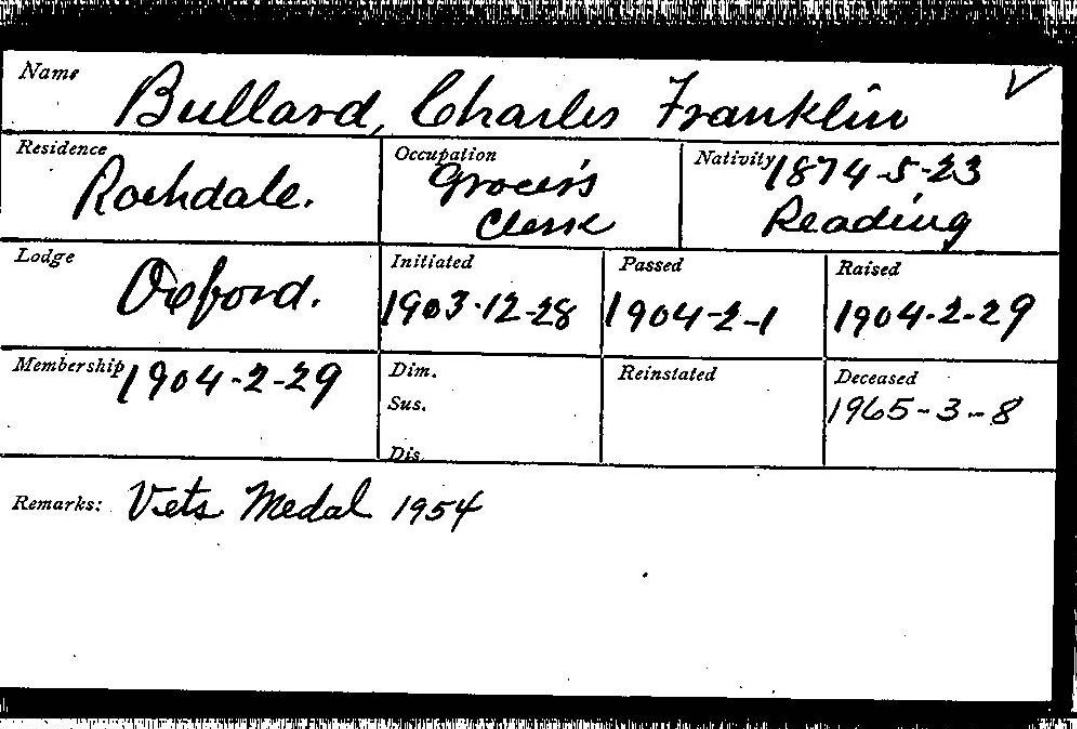 Name Bullard, Charles Franklin
Residence Rochdale.
Occupation Grocer's
Clerk
Nativity 1874-5-23
Reading
Lodge Oxford.
Initiated
1903-12-28
Passed
1904-2-1
Raised
1904-2-29
Membership 1904-2-29
Dim.
Sus.
Dis.
Reinstated
Deceased
1965-3-8
Remarks: Vets Medal 1954